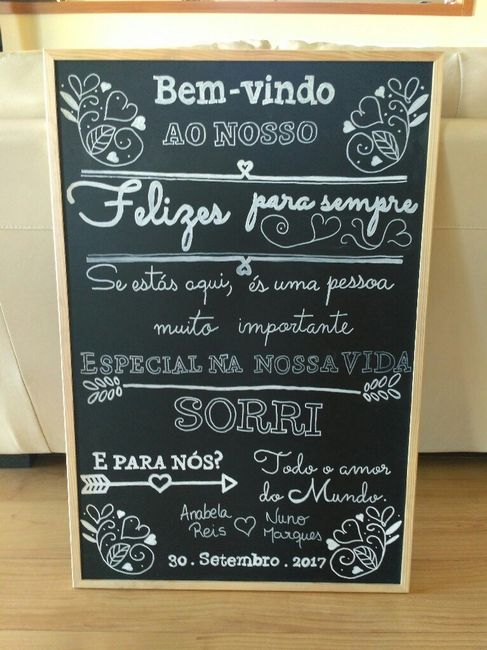 Bem-vindo
AO NOSSO
Felizes para sempre
Se estás aqui, és uma pessoa
muito importante
ESPECIAL NA NOSSA VIDA
SORRI
E PARA NÓS? Todo o amor
do Mundo.
Anabela Reis ♡ Nuno Marques
30 . Setembro . 2017